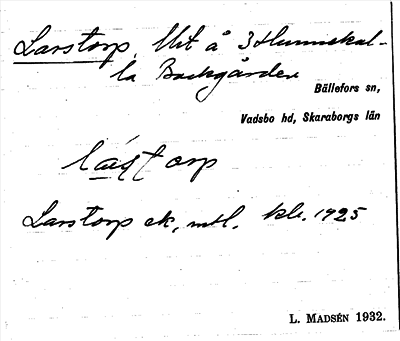 Larstorp, Utt å 3 Hunnekul-
la Backgården
Bällefors sn,
Vadsbo hd, Skaraborgs län
lástorp
Larstorp ek, mtl. kbr. 1925
L. MADSÉN 1932.